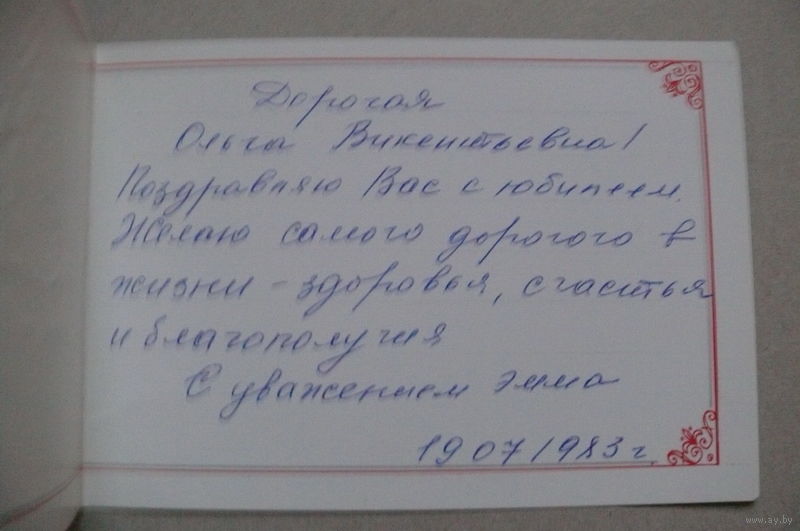 Дорогая
Ольга Викентьевна!
Поздравляю Вас с юбилеем.
Желаю самого дорогого в
жизни - здоровья, счастья
и благополучия
С уважением Эмма
19 07 1983 г.
www.ay.by